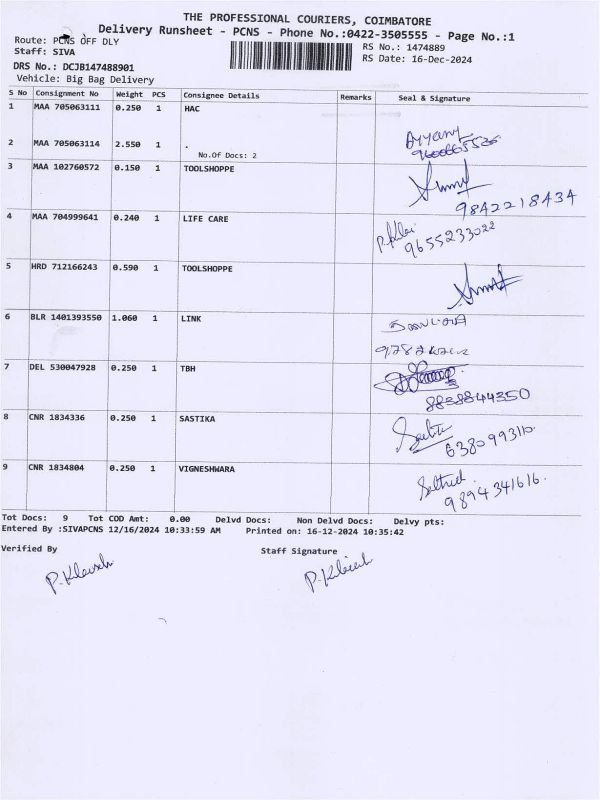 THE PROFESSIONAL COURIERS, COIMBATORE
Delivery Runsheet - PCNS - Phone No.:0422-3505555 - Page No.:1
Route: PCNS OFF DLY
RS No.: 1474889
Staff: SIVA
RS Date: 16-Dec-2024
DRS No.: DCJB147488901
Vehicle: Big Bag Delivery
S No Consignment No Weight PCS Consignee Details Remarks Seal & Signature
1 MAA 705063111 0.250 1 HAC
2 MAA 705063114 2.550 1 .
No.Of Docs: 2
3 MAA 102760572 0.150 1 TOOLSHOPPE
9842218434
4 MAA 704999641 0.240 1 LIFE CARE
9655233022
5 HRD 712166243 0.590 1 TOOLSHOPPE
6 BLR 1401393550 1.060 1 LINK
7 DEL 530047928 0.250 1 TBH
8838844350
8 CNR 1834336 0.250 1 SASTIKA
6380993110
9 CNR 1834804 0.250 1 VIGNESHWARA
9894341616
Tot Docs: 9 Tot COD Amt: 0.00 Delvd Docs: Non Delvd Docs: Delvy pts:
Entered By :SIVAPCNS 12/16/2024 10:33:59 AM Printed on: 16-12-2024 10:35:42
Verified By Staff Signature